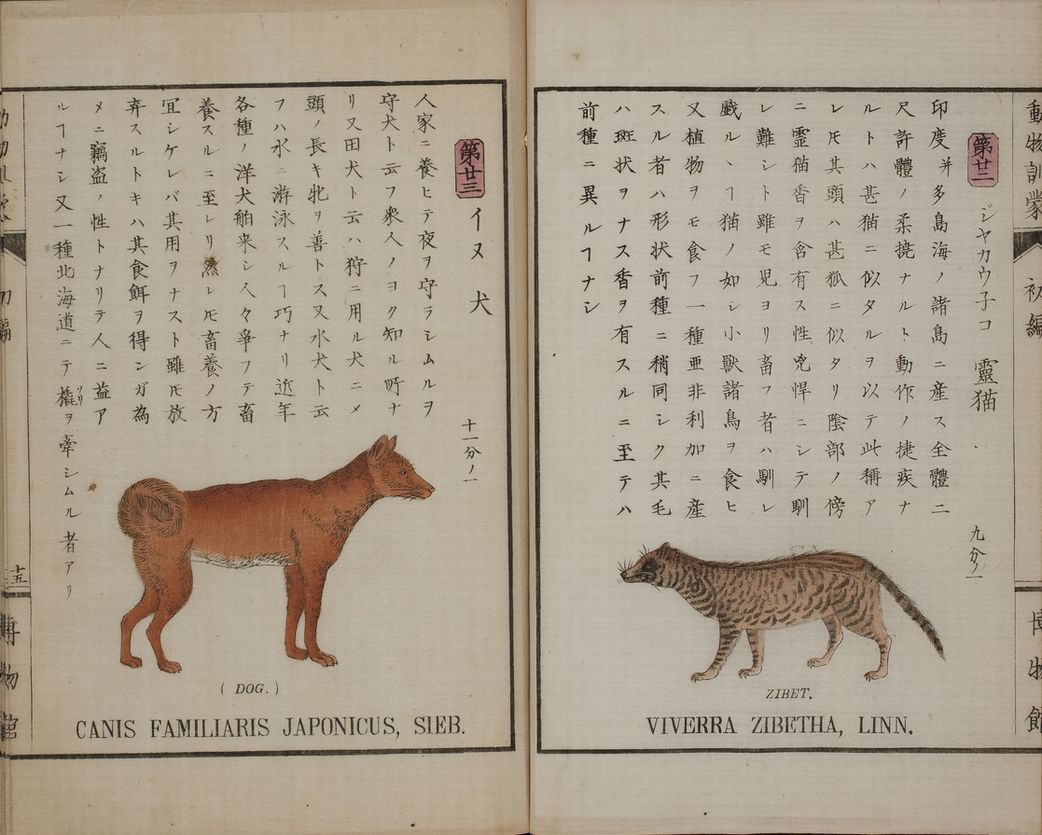 動物訓蒙
初編
博物館
第廿二
ジヤカウ子コ 靈猫
九分ノ一
印度并多島海ノ諸島ニ産ス全體二
尺許體ノ柔撓ナルト動作ノ捷疾ナ
ルトハ甚猫ニ似タルヲ以テ此稱ア
レ𪜈其頭ハ甚狐ニ似タリ陰部ノ傍
ニ霊猫香ヲ含有ス性兇悍ニシテ馴
レ難シト雖モ児ヨリ畜フ者ハ馴レ
戯ルヽヿ猫ノ如シ小獸諸鳥ヲ食ヒ
又植物ヲモ食フ一種亜非利加ニ産
スル者ハ形状前種ニ稍同シク其毛
ハ斑状ヲナス香ヲ有スルニ至テハ
前種ニ異ルヿナシ
ZIBET.
VIVERRA ZIBETHA, LINN.
第廿三
イヌ 犬
十一分ノ一
人家ニ養ヒテ夜ヲ守ラシムルヲ
守犬ト云フ衆人ノヨク知ル所ナ
リ又田犬ト云ハ狩ニ用ル犬ニメ
頭ノ長キ牝ヲ善トス又水犬ト云
フハ水ニ游泳スルヿ巧ナリ近年
各種ノ洋犬舶来シ人々爭フテ畜
養スルニ至レリ然レ𪜈畜養ノ方
宜シケレバ其用ヲナスト雖𪜈放
弃スルトキハ其食餌ヲ得ンガ為
メニ竊盗ノ性トナリテ人ニ益ア
ルヿナシ又一種北海道ニテ橇ヲ牽シムル者アリ
ソリ
( DOG. )
CANIS FAMILIARIS JAPONICUS, SIEB.
十五
博物館